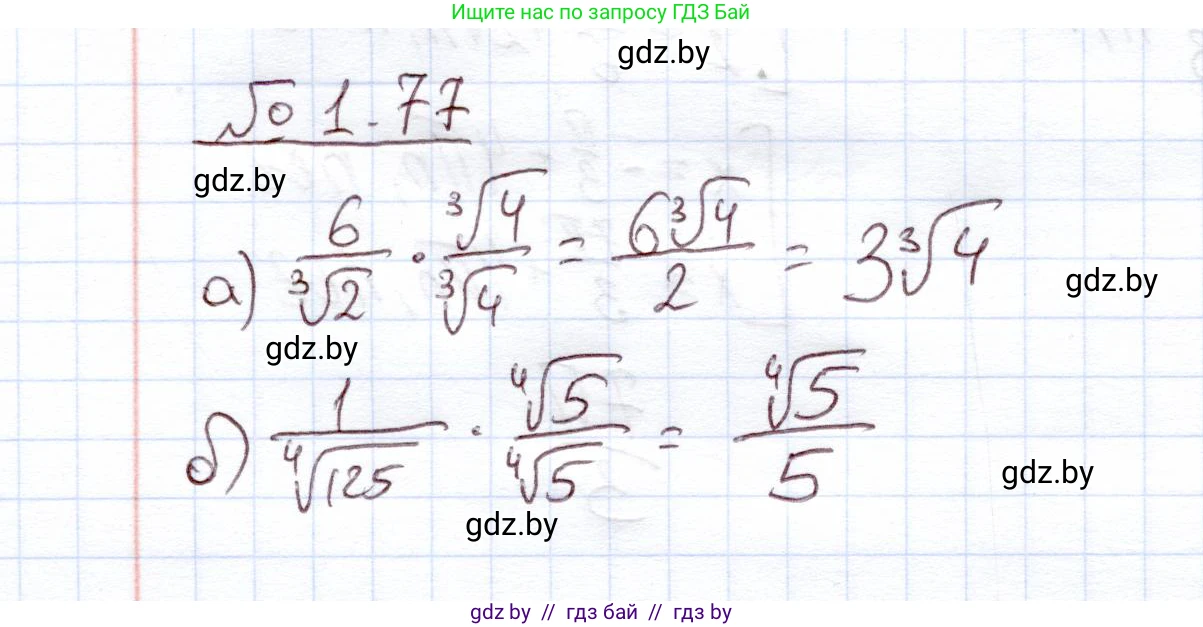 Ищите нас по запросу ГДЗ Бай
gdz.by
№ 1.77
gdz.by
а) 6/∛2 · ∛4/∛4 = 6∛4/2 = 3∛4
gdz.by
gdz.by
б) 1/∜125 · ∜5/∜5 = ∜5/5
gdz.by
gdz.by
gdz by // гдз бай // гдз by